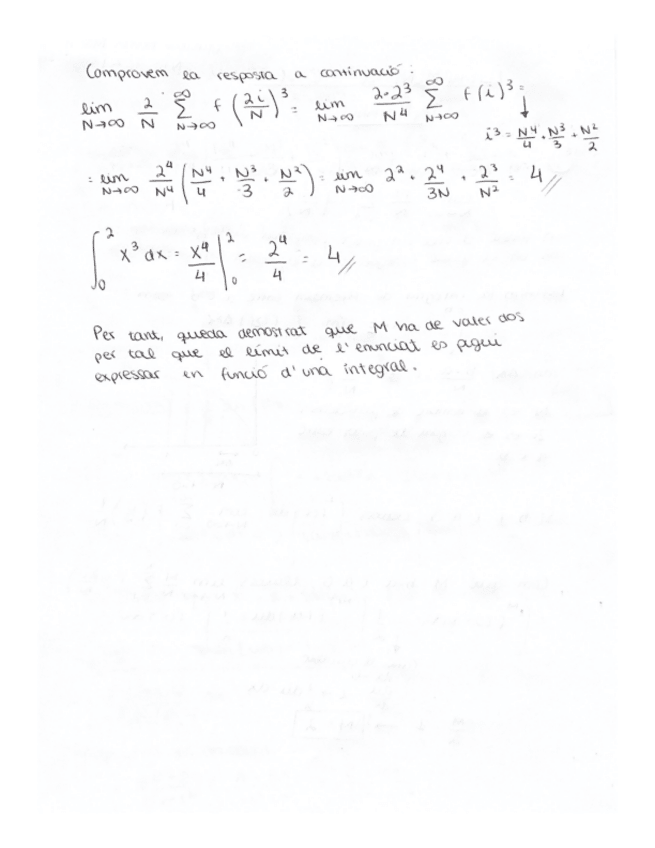 Comprovem la resposta a continuació:
lim N→∞ 2/N ∞ Σ N→∞ f (2i/N)³ = lim N→∞ 2·2³/N⁴ ∞ Σ N→∞ f(i)³ =
↓
i³ = N⁴/4 + N³/3 + N²/2
= lim N→∞ 2⁴/N⁴ (N⁴/4 + N³/3 + N²/2) = lim N→∞ 2² + 2⁴/3N + 2³/N² = 4 //
∫₀² x³ dx = x⁴/4 |₀² = 2⁴/4 = 4 //
Per tant, queda demostrat que M ha de valer dos
per tal que el límit de l'enunciat es pugui
expressar en funció d'una integral.